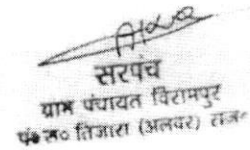 सरपंच
ग्राम पंचायत विरामपुर
पं० स० तिजारा (अलवर) राज०